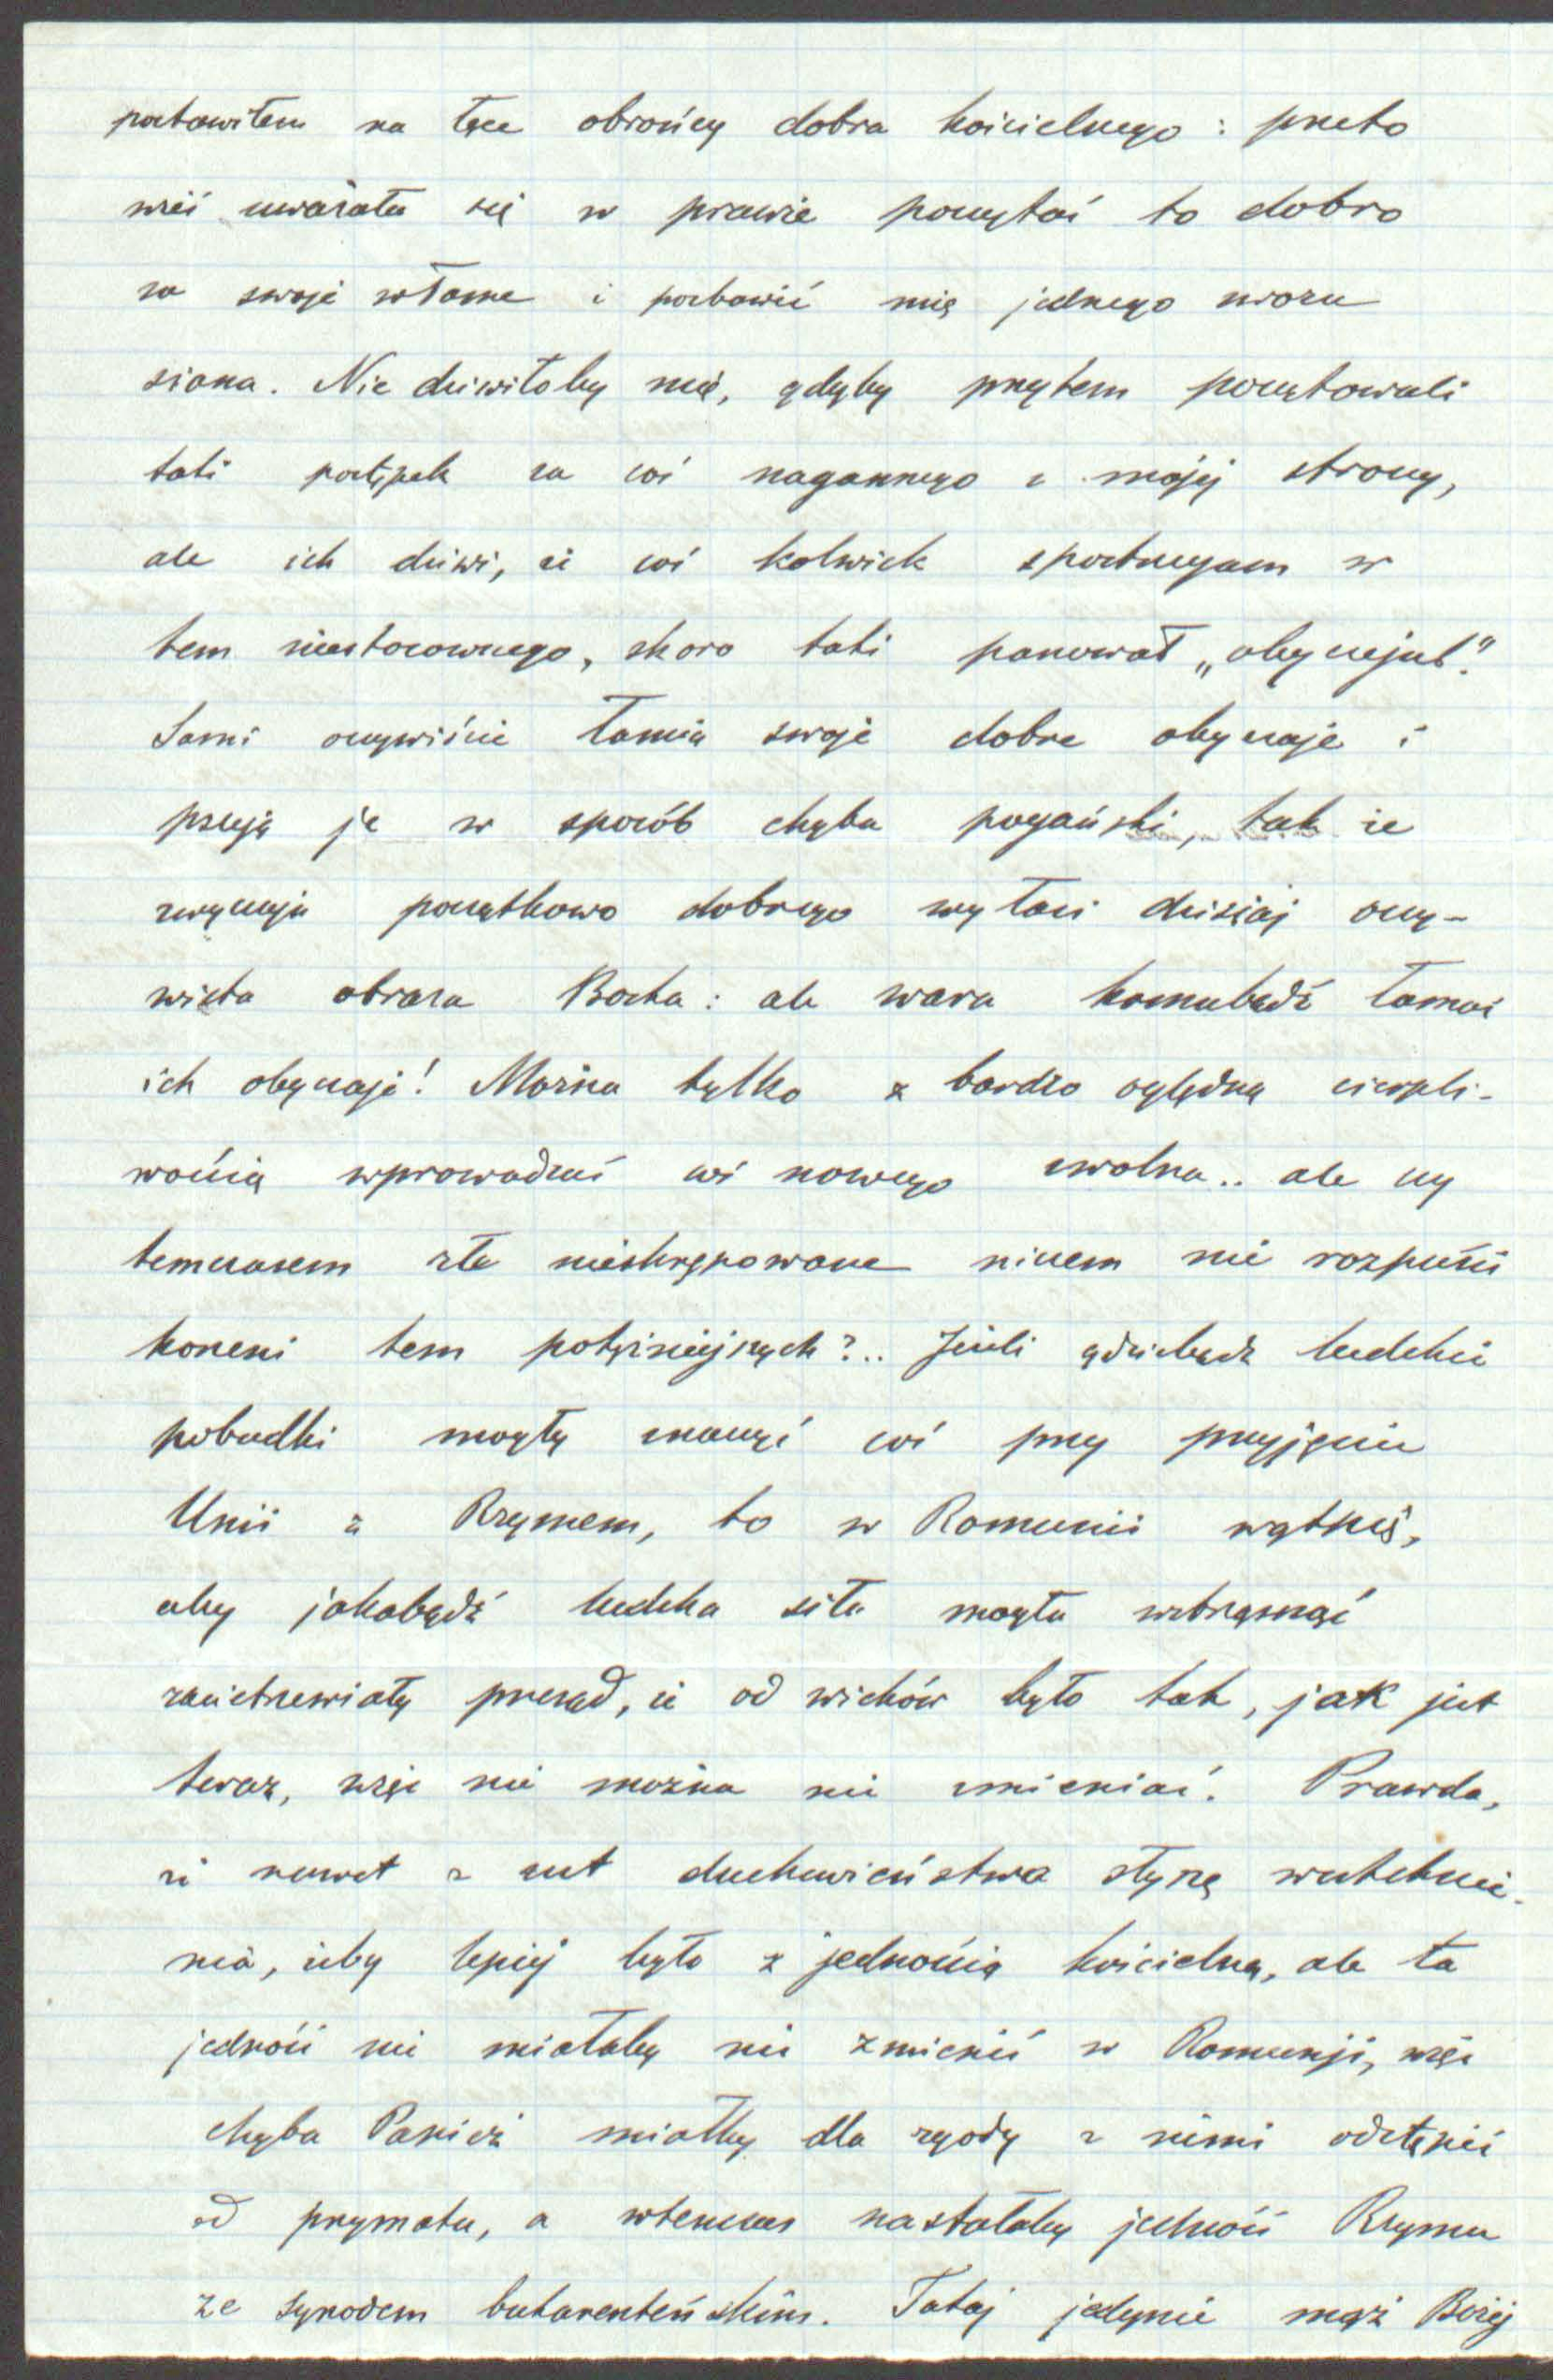 postawiłem na łące obrońcy dobra kościelnego: przeto
wieś uważała się w prawie poczytać to dobro
za swoje własne i pozbawić mię jednego wozu
siana. Nie dziwiłoby mię, gdyby przytem poczytowali
taki postępek za coś nagannego z mojej strony,
ale ich dziwi, że coś kolwiek spostrzegam w
tem niestosownego, skoro taki panował „obyczejul".
Sami oczywiście łamią swoje dobre obyczaje i
psują je w sposób chyba pogański, tak że
zwyczaju początkowo dobrego wyłazi dzisiaj oczy-
wista obraza Boska: ale wara komubądź łamać
ich obyczaje! Można tylko z bardzo oględną cierpli-
wością wprowadzać coś nowego zwolna.. ale czy
temczasem zło nieskrępowane niczem nie rozpuści
korzeni tem potężniejszych?.. Jeżeli gdziebądź ludzkie
pobudki mogły znaczyć coś przy przyjęciu
Unii z Rzymem, to w Rumunii wątpię,
aby jakabądź ludzka siła mogła wstrząsnąć
zacietrzewiały przesąd, że od wieków było tak, jak jest
teraz, więc nie można nic zmieniać. Prawda,
że nawet z ust duchowieństwa słyszę westchnie-
nia, żeby lepiej było z jednością kościelną, ale ta
jedność nie miałaby nic zmienić w Rumunji, więc
chyba Papież miałby dla zgody z nimi odstąpić
od prymatu, a wtenczas nastałaby jedność Rzymu
ze synodem bukareszteńskim. Tutaj jedynie mąż Bożej